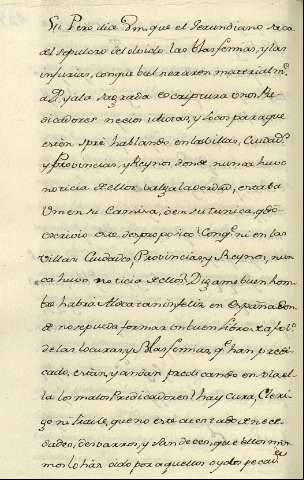 Pero dia Vm. que el Gerundiano saca
del sepulcro del olvido las blasfemias, y las
injurias, con que bulneraron material
a D. y a la Sagrada escriptura unos Pre
dicadores necios idiotas, y locos para que
estén spre. hablando en las Villas, Ciudad.
y Provincias, y Reynos donde nunca huvo
noticia de ellos valga la verdad, estaba
Vm en su Camisa, ó en su tunica, qdo.
escrivio este desproposito? Conque ni en las
Villas Ciudades, Provincias, y Reynos, nun
ca huvo noticia de ellos? Digame buen hom
bre habrá Aldea tan infeliz en España don
de no se pueda formar un buen libro
de las locuras, y Blasfemias, qe. han predi
cado, están, y andan predicando en
la los malos Predicadores? hay Cura, Cleri
go ni fraile, que no este atestado de nece
dades, desbarros, y sandeces, que ellos mis
mos lo han oido por aquellos oydos pecad